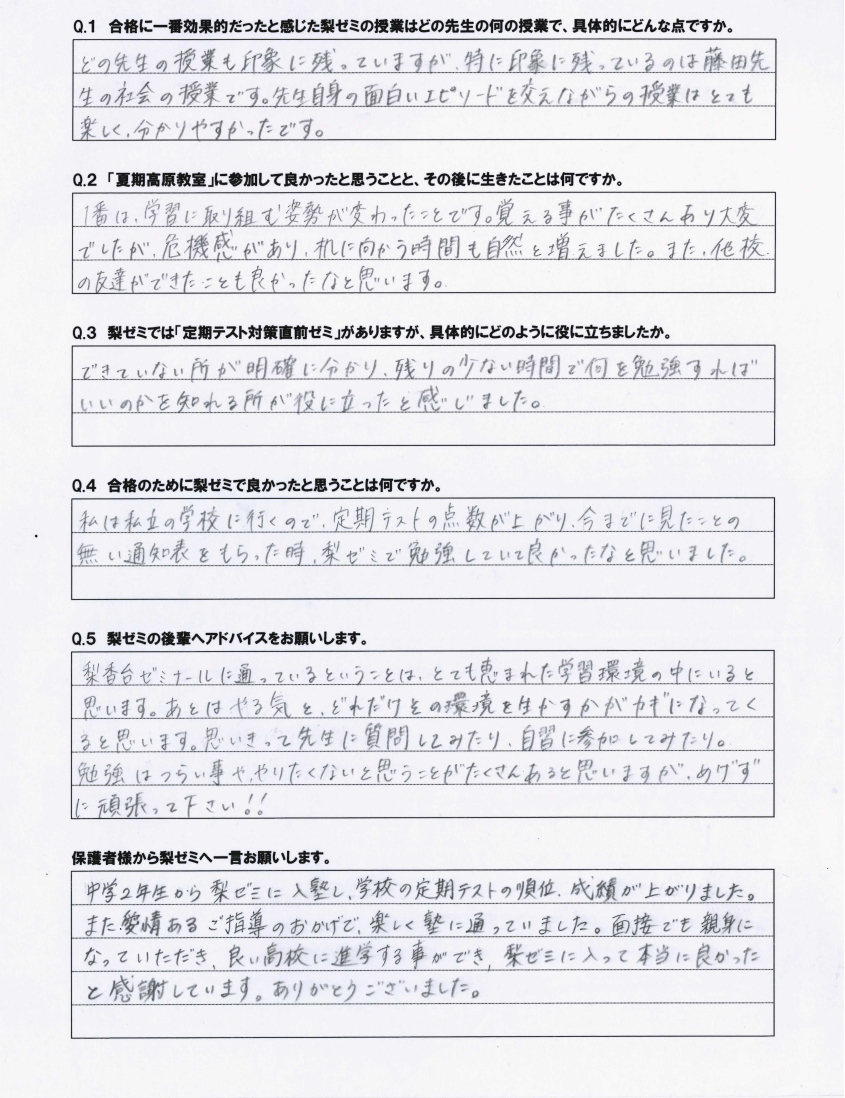 Q.1 合格に一番効果的だったと感じた梨ゼミの授業はどの先生の何の授業で、具体的にどんな点ですか。
どの先生の授業も印象に残っていますが、特に印象に残っているのは藤田先
生の社会の授業です。先生自身の面白いエピソードを交えながらの授業はとても
楽しく、分かりやすかったです。
Q.2 「夏期高原教室」に参加して良かったと思うことと、その後に生きたことは何ですか。
1番は、学習に取り組む姿勢が変わったことです。覚える事がたくさんあり大変
でしたが、危機感があり、机に向かう時間も自然と増えました。また、他校
の友達ができたことも良かったなと思います。
Q.3 梨ゼミでは「定期テスト対策直前ゼミ」がありますが、具体的にどのように役に立ちましたか。
できていない所が明確に分かり、残りの少ない時間で何を勉強すれば
いいのかを知れる所が役に立ったと感じました。
Q.4 合格のために梨ゼミで良かったと思うことは何ですか。
私は私立の学校に行くので、定期テストの点数が上がり、今までに見たことの
無い通知表をもらった時、梨ゼミで勉強していて良かったなと思いました。
Q.5 梨ゼミの後輩へアドバイスをお願いします。
梨香台ゼミナールに通っているということは、とても恵まれた学習環境の中にいると
思います。あとはやる気と、どれだけその環境を生かすかがカギになってく
ると思います。思いきって先生に質問してみたり、自習に参加してみたり。
勉強はつらい事や、やりたくないと思うことがたくさんあると思いますが、めげず
に頑張って下さい!!
保護者様から梨ゼミへ一言お願いします。
中学2年生から梨ゼミに入塾し、学校の定期テストの順位、成績が上がりました。
また愛情あるご指導のおかげで、楽しく塾に通っていました。面接でも親身に
なっていただき、良い高校に進学する事ができ、梨ゼミに入って本当に良かった
と感謝しています。ありがとうございました。